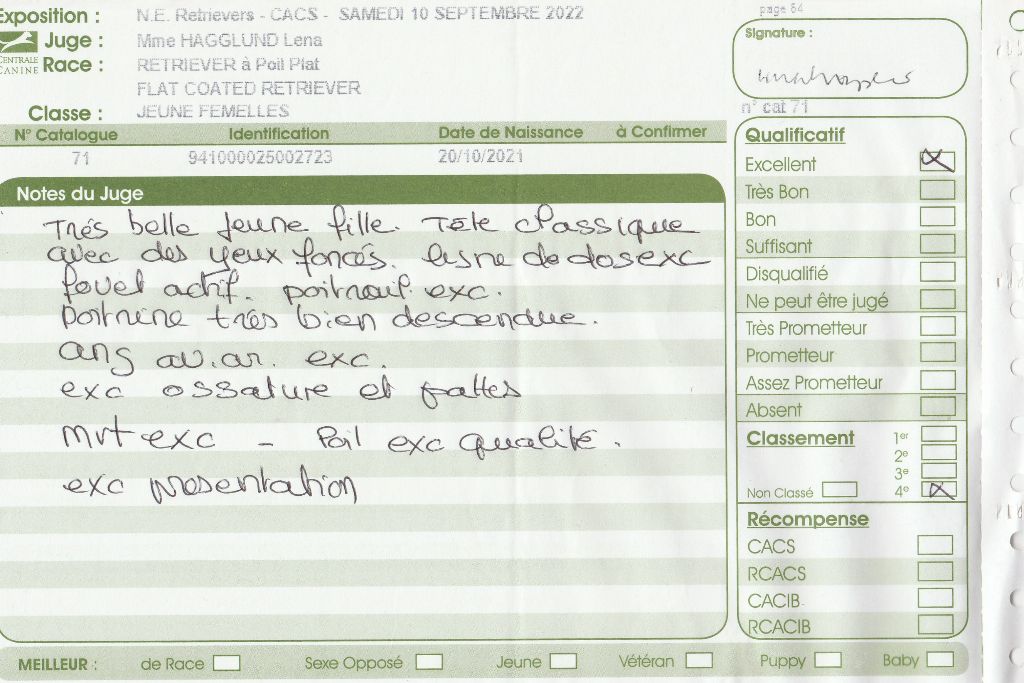 Exposition : N.E. Retrievers - CACS - SAMEDI 10 SEPTEMBRE 2022
page 64
Juge : Mme HAGGLUND Lena
Signature :
CENTRALE CANINE
Race : RETRIEVER à Poil Plat
FLAT COATED RETRIEVER
Classe : JEUNE FEMELLES
n° cat 71
N° Catalogue Identification Date de Naissance à Confirmer
71 941000025002723 20/10/2021
Notes du Juge
Trés belle jeune fille. Tete classique
avec des yeux foncés. ligne de dos exc
fouet actif. poitrail exc.
Poitrine très bien descendue.
ang av.ar. exc.
exc ossature et pattes
mvt exc - Poil exc qualité.
exc presentation
Qualificatif
Excellent X
Très Bon
Bon
Suffisant
Disqualifié
Ne peut être jugé
Très Prometteur
Prometteur
Assez Prometteur
Absent
Classement 1er
2e
3e
Non Classé 4e X
Récompense
CACS
RCACS
CACIB
RCACIB
MEILLEUR : de Race Sexe Opposé Jeune Vétéran Puppy Baby